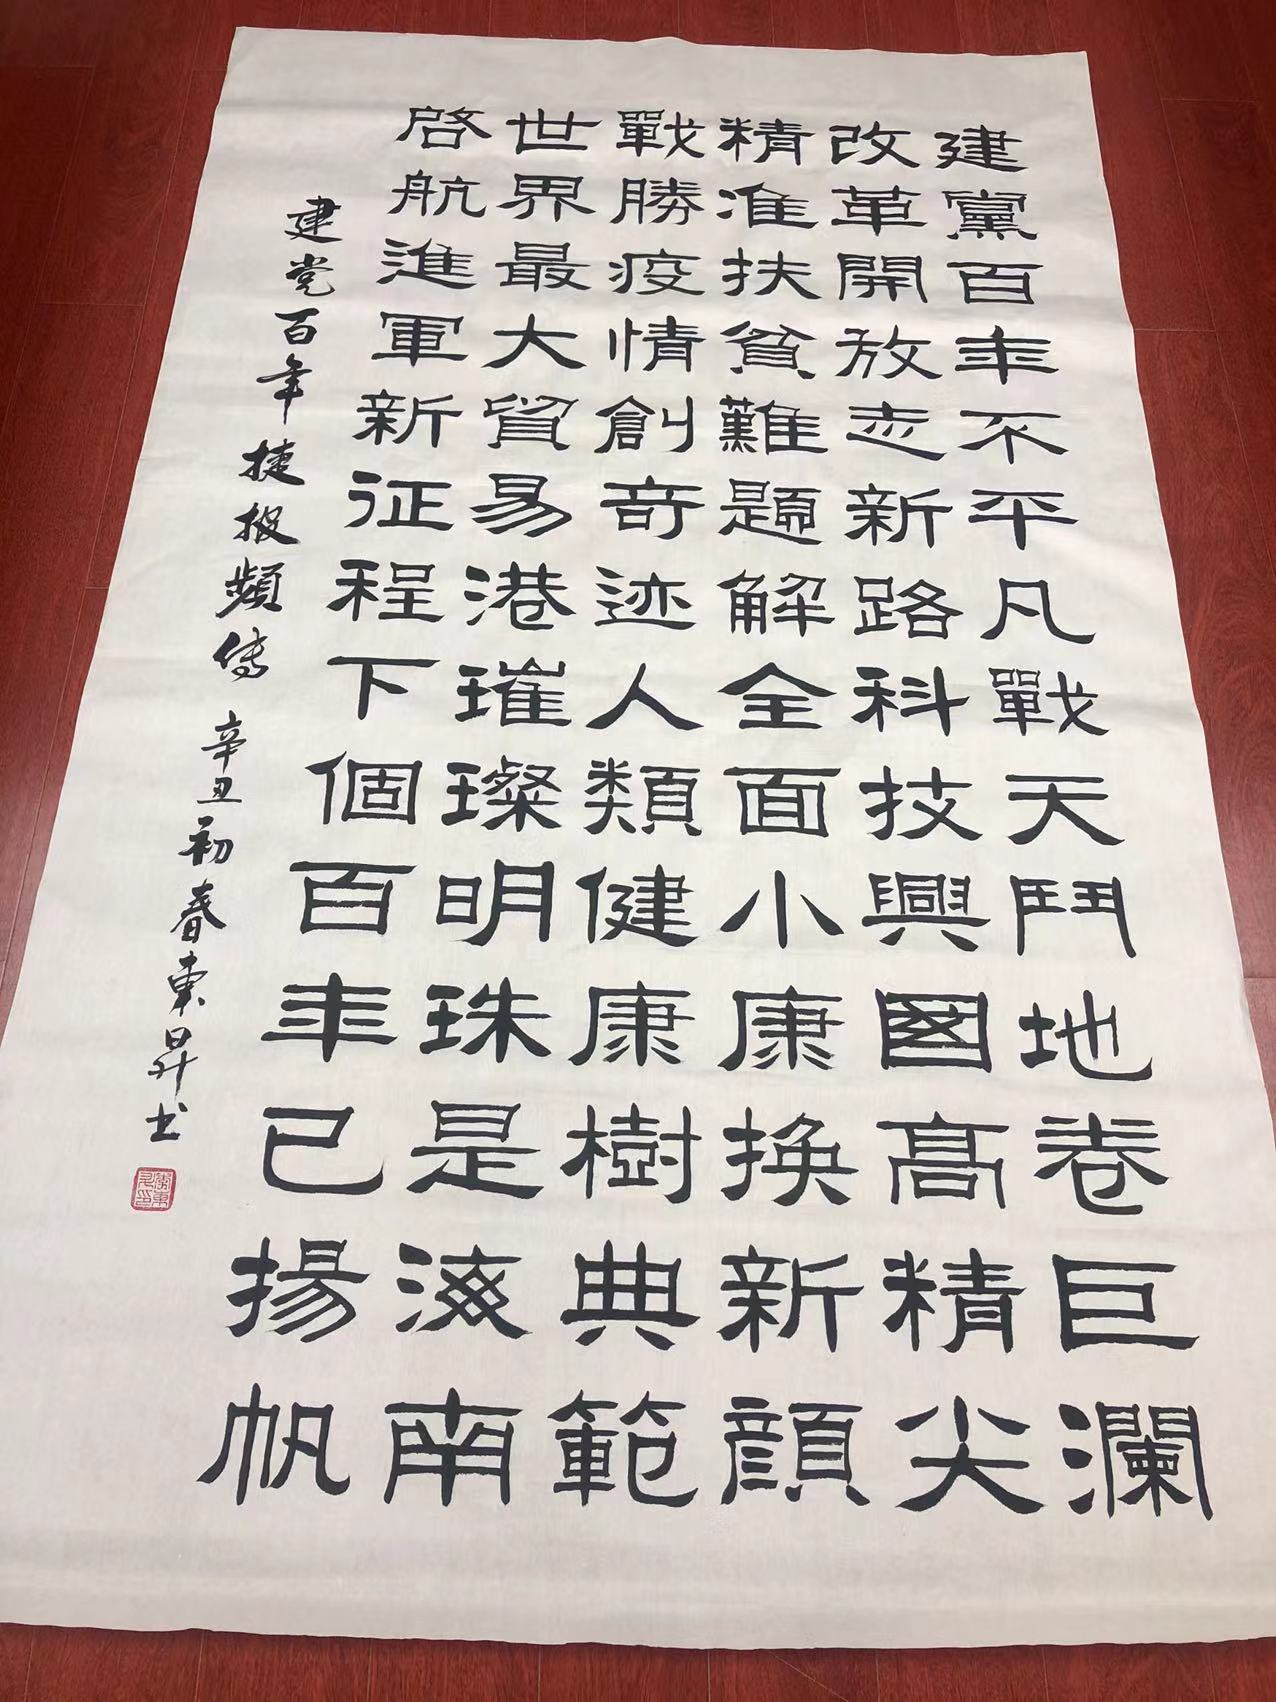 建黨百年不平凡戰天鬥地卷巨瀾
改革開放走新路科技興國高精尖
精准扶貧難題解全面小康換新顔
戰勝疫情創奇迹人類健康樹典範
世界最大貿易港璀璨明珠是海南
啓航進軍新征程下個百年已揚帆
建党百年捷报頻傳 辛丑初春東昇书